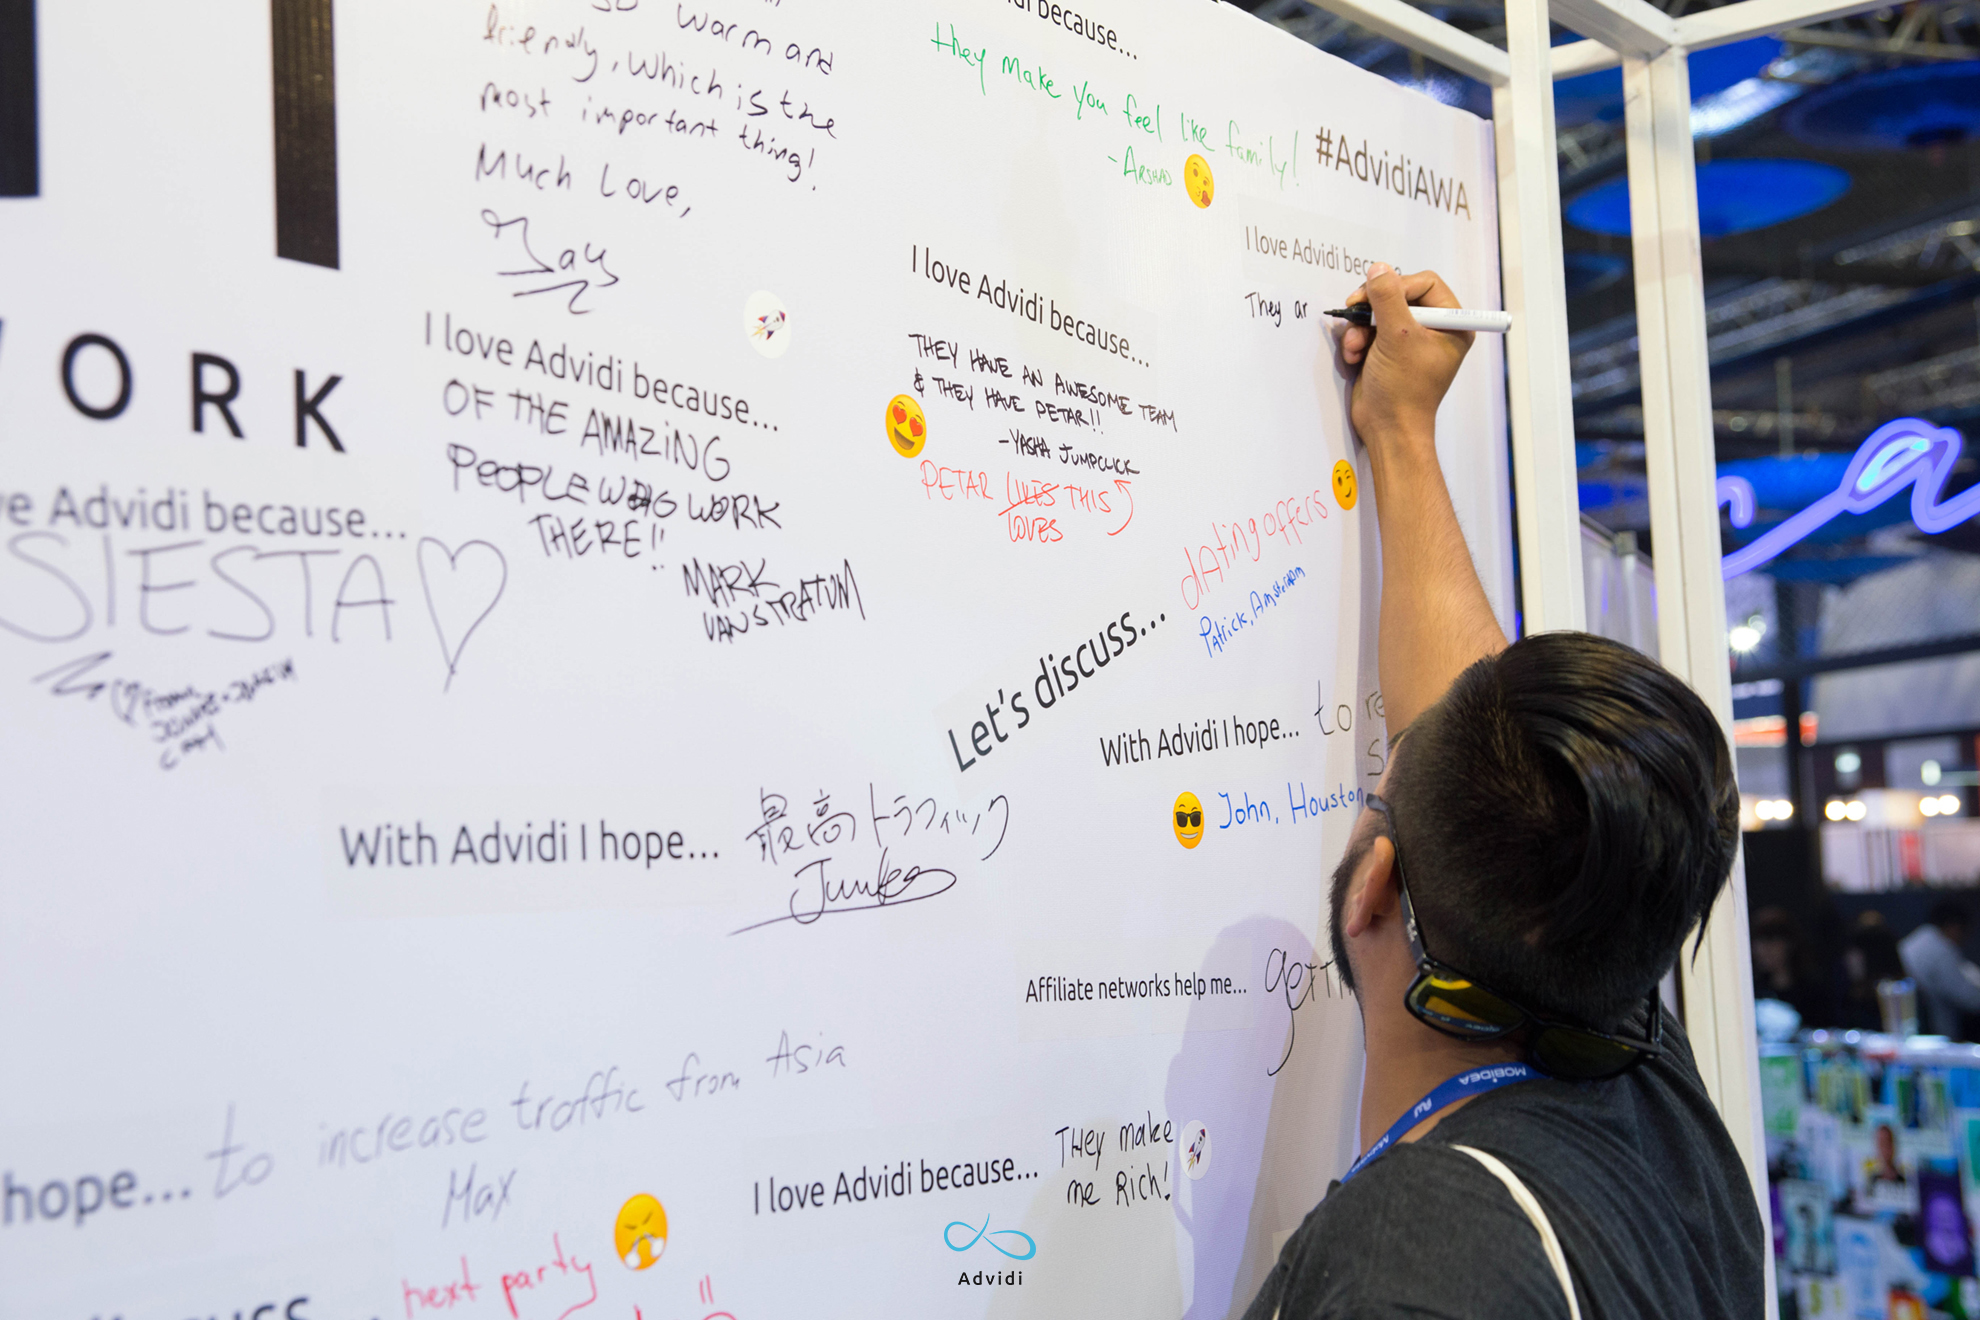 warm and
friendly, which is the
most important thing!
Much Love,
because...
they make you feel like family!
-ARSHAD
#AdvidiAWA
I love Advidi
They ar
I love Advidi because...
THEY HAVE AN AWESOME TEAM
& THEY HAVE PETAR!!
-YASHA JUMPCLICK
PETAR LIKES THIS
LOVES
I love Advidi because...
OF THE AMAZING
PEOPLE WORK
THERE!!
MARK
VAN STRATUM
ORK
Advidi because...
SIESTA
From
Let's discuss...
dAting offers
PAtrick, Amsterdam
With Advidi I hope... to re
John, Houston
With Advidi I hope... 最高トラフィック
Affiliate networks help me...
hope... to increase traffic from Asia
Max
I love Advidi because... THey make
me Rich!
next party
Advidi
MOBIDEA